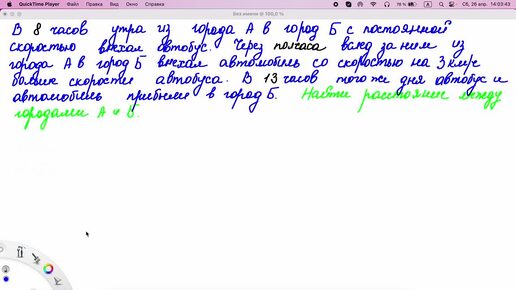 QuickTime Player Файл Правка Вид Окно Справка 78 % Сб, 26 апр. 14:03:43
Без имени @ 100,0 %
В 8 часов утра из города А в город Б с постоянной
скоростью выехал автобус. Через полчаса вслед за ним из
города А в город Б выехал автомобиль со скоростью на 3 км/ч
больше скорости автобуса. В 13 часов того же дня автобус и
автомобиль прибыли в город Б. Найти расстояние между
городами А и Б.